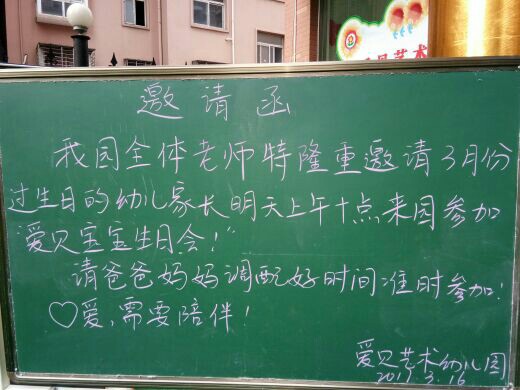 邀请函
我园全体老师特隆重邀请3月份
过生日的幼儿家长明天上午十点来园参加
"爱贝宝宝生日会!"
请爸爸妈妈调配好时间准时参加!
♡爱,需要陪伴!
爱贝艺术幼儿园
2017.3.16